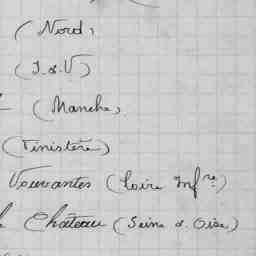 (Nord)
(I. & V)
(Manche)
(Finistère)
Vouvantes (Loire Infre)
Château (Seine & Oise)